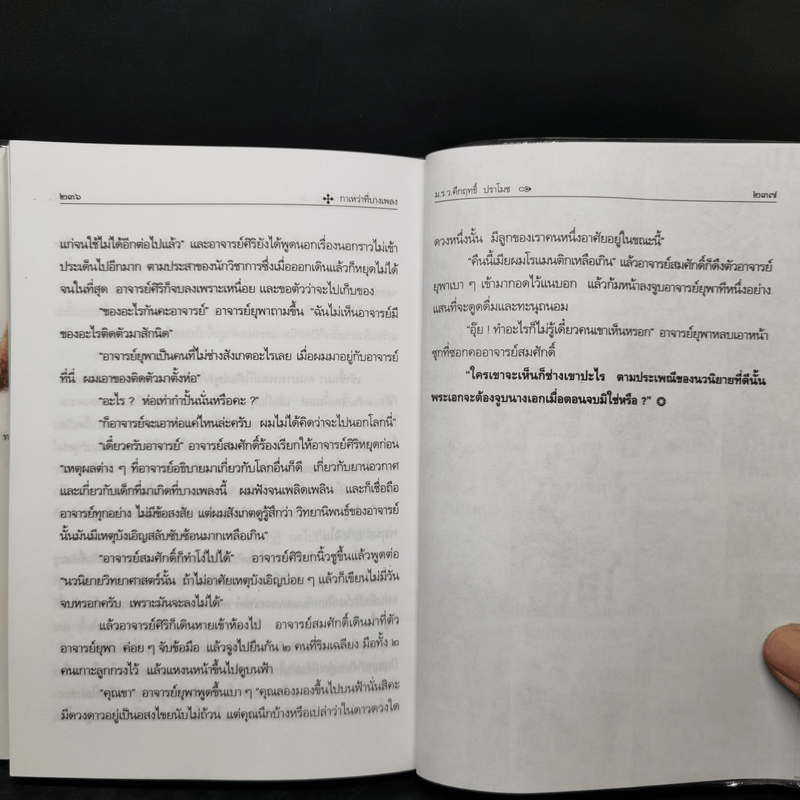 ๒๓๖
กาเหว่าที่บางเพลง
แก่จนใช้ไม่ได้อีกต่อไปแล้ว” และอาจารย์ศิริยังได้พูดนอกเรื่องนอกราวไม่เข้า
ประเด็นไปอีกมาก ตามประสาของนักวิชาการซึ่งเมื่อออกเดินแล้วก็หยุดไม่ได้
จนในที่สุด อาจารย์ศิริก็จบลงเพราะเหนื่อย และขอตัวว่าจะไปเก็บของ
“ของอะไรกันคะอาจารย์” อาจารย์ยุพาถามขึ้น “ฉันไม่เห็นอาจารย์มี
ของอะไรติดตัวมาสักนิด”
“อาจารย์ยุพาเป็นคนที่ไม่ช่างสังเกตอะไรเลย เมื่อผมมาอยู่กับอาจารย์
ที่นี่ ผมเอาของติดตัวมาตั้งห่อ”
“อะไร ? ห่อเท่ากำปั้นนั่นหรือคะ ?”
“ก็อาจารย์จะเอาห่อแค่ไหนล่ะครับ ผมไม่ได้คิดว่าจะไปนอกโลกนี่”
“เดี๋ยวครับอาจารย์” อาจารย์สมศักดิ์ร้องเรียกให้อาจารย์ศิริหยุดก่อน
“เหตุผลต่าง ๆ ที่อาจารย์อธิบายมาเกี่ยวกับโลกอื่นก็ดี เกี่ยวกับยานอวกาศ
และเกี่ยวกับเด็กที่มาเกิดที่บางเพลงนี้ ผมฟังจนเพลิดเพลิน และก็เชื่อถือ
อาจารย์ทุกอย่าง ไม่มีข้อสงสัย แต่ผมสังเกตดูรู้สึกว่า วิทยานิพนธ์ของอาจารย์
นั้นมันมีเหตุบังเอิญสลับซับซ้อนมากเหลือเกิน”
“อาจารย์สมศักดิ์ก็ทำโง่ไปได้” อาจารย์ศิริยกนิ้วชูขึ้นแล้วพูดต่อ
“นวนิยายวิทยาศาสตร์นั้น ถ้าไม่อาศัยเหตุบังเอิญบ่อย ๆ แล้วก็เขียนไม่มีวัน
จบหรอกครับ เพราะมันจะลงไม่ได้”
แล้วอาจารย์ศิริก็เดินหายเข้าห้องไป อาจารย์สมศักดิ์เดินมาที่ตัว
อาจารย์ยุพา ค่อย ๆ จับข้อมือ แล้วจูงไปยืนกัน ๒ คนที่ริมเฉลียง มือทั้ง ๒
คนเกาะลูกกรงไว้ แล้วแหงนหน้าขึ้นไปดูบนฟ้า
“คุณขา” อาจารย์ยุพาพูดขึ้นเบา ๆ “คุณลองมองขึ้นไปบนฟ้านั่นสิคะ
มีดวงดาวอยู่เป็นอสงไขยนับไม่ถ้วน แต่คุณนึกบ้างหรือเปล่าว่าในดาวดวงใด
ม.ร.ว.คึกฤทธิ์ ปราโมช
๒๓๗
ดวงหนึ่งนั้น มีลูกของเราคนหนึ่งอาศัยอยู่ในขณะนี้”
“คืนนี้เมียผมโรแมนติกเหลือเกิน” แล้วอาจารย์สมศักดิ์ก็ดึงตัวอาจารย์
ยุพาเบา ๆ เข้ามากอดไว้แนบอก แล้วก้มหน้าลงจูบอาจารย์ยุพาทีหนึ่งอย่าง
แสนที่จะดูดดื่มและทะนุถนอม
“อุ๊ย ! ทำอะไรก็ไม่รู้เดี๋ยวคนเขาเห็นหรอก” อาจารย์ยุพาหลบเอาหน้า
ซุกที่ซอกคออาจารย์สมศักดิ์
“ใครเขาจะเห็นก็ช่างเขาปะไร ตามประเพณีของนวนิยายที่ดีนั้น
พระเอกจะต้องจูบนางเอกเมื่อตอนจบมิใช่หรือ ?”